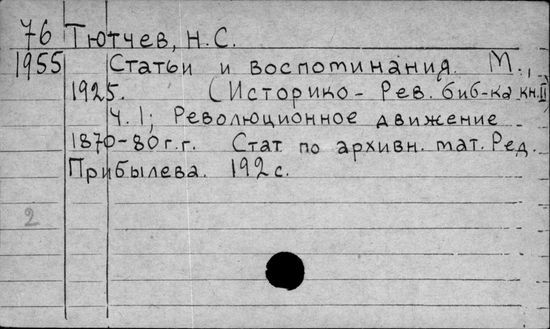 76 Тютчев, Н.С.
1955 Статьи и воспоминания. М.,
1925. (Историко-Рев. биб-ка кн. II)
ч. I; Революционное движение
1870-80 г.г. Стат по архивн. мат. Ред.
Прибылева. 192 с.
2